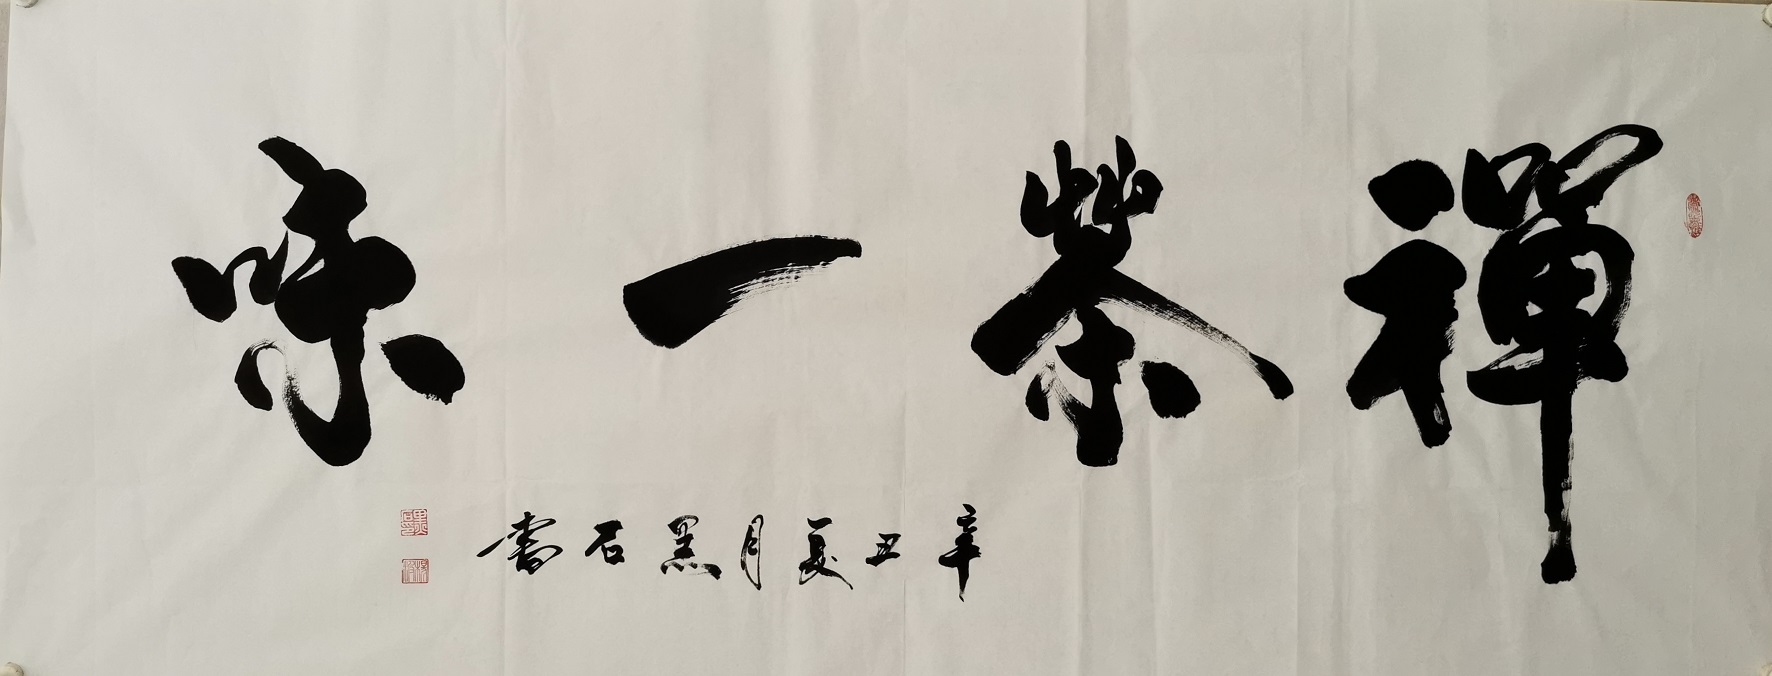 禪茶一味
辛丑夏月黑石書